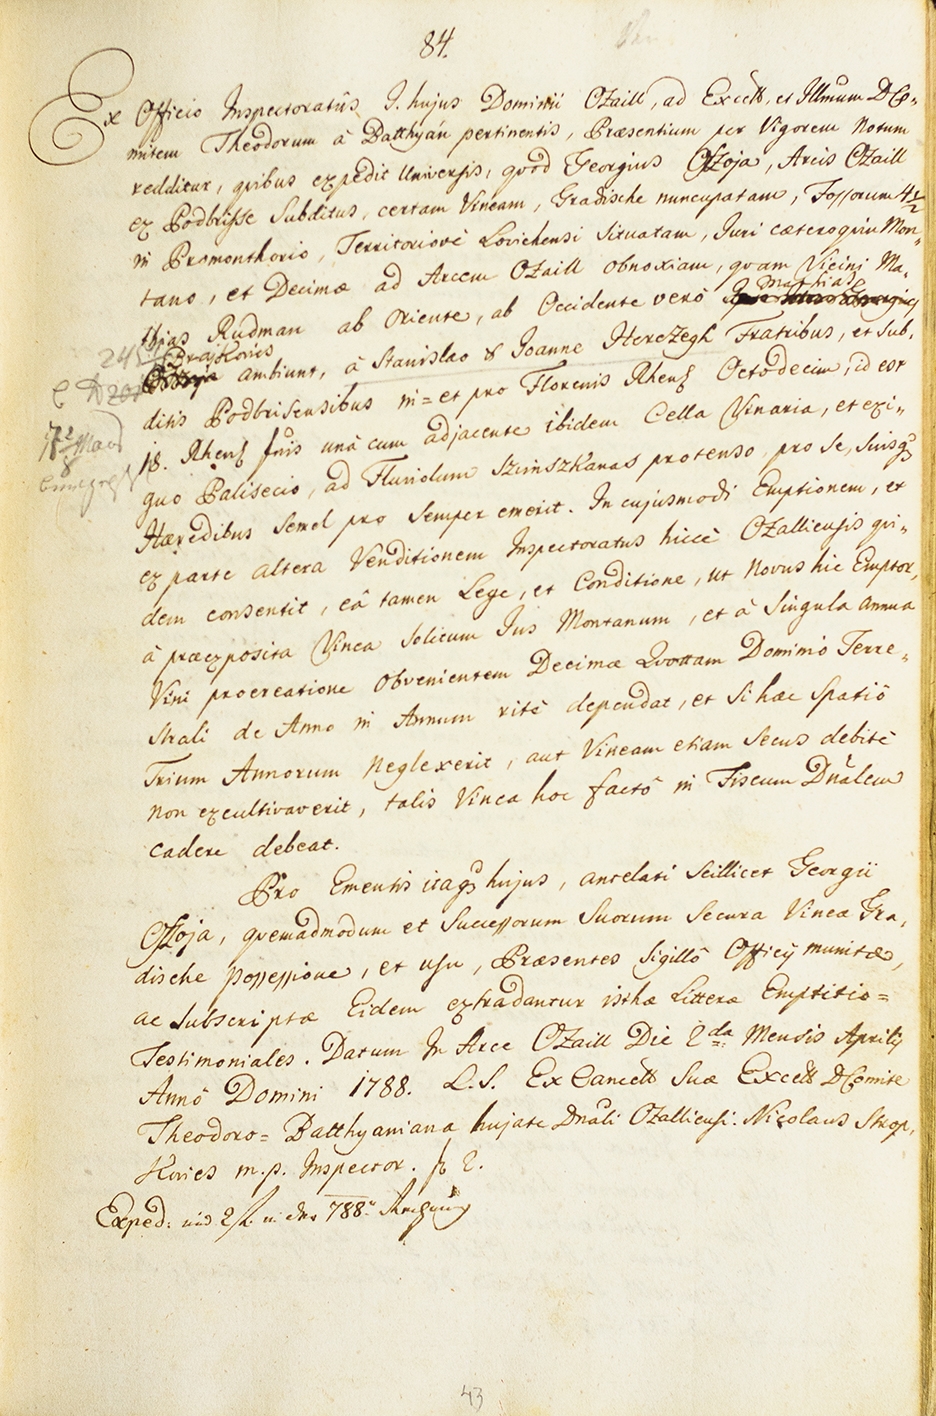 84.
Ex Officio Inspectoratûs I. hujus Dominii Ozaill, ad Excell. et Illmum D Co-
mitem Theodorum à Batthyán pertinentis, Præsentium per Vigorem Notum
redditur, quibus expedit Universis, quod Georgius Ofzoja, Arcis Ozaill
ex Podbrisse Subditus, certam Vineam, Gradische nuncupatam, Fossorum 4 1/2
in Promonthorio, Territoriovè Lovichensi Situatam, Juri cæteroquin Mon-
tano, et Decimæ ad Arcem Ozaill obnoxiam, quam Vicini Ma-
thias Rudman ab Oriente, ab Occidente verò Mathias
Praskovics ambiunt, à Stanislao & Joanne Herczegh Fratribus, et Sub-
ditis Podbrisensibus in= et pro Florenis Rhens Octodecim, id est
18. Rhens fnis unà cum adjacente ibidem Cella Vinaria, et exi-
guo Palisecio, ad Fluviolum Szimszkanas protenso, pro se, Suisq
Hæredibus Semel pro Semper emerit. In cujusmodi Emptionem, et
ex parte altera Venditionem Inspectoratus hiccè Ozalliensis qui-
dem consentit, eâ tamen Lege, et Conditione, ut Novus hic Emptor,
à præexposita Vinea Solitum Jus Montanum, et à Singula annua
Vini procreatione obvenientem Decimæ Quottam Dominio Terre-
strali de Anno in Annum ritè dependat, et Si hæc Spatiô
Trium Annorum Neglexerit, aut Vineam etiam Secus debitè
non excultivaverit, talis Vinea hoc factô in Fiscum Dnalem
cadere debeat.
Pro Ementis itaq hujus, antelati Scillicet Georgii
Ofzoja, quemadmodum et Successorum Suorum Secura Vineæ Gra-
dische possessione, et usu, Præsentes Sigillô Officij munitæ,
ac Subscriptæ Eidem extradantur isthæ Litteræ Emptitio=
Testimoniales. Datum In Arce Ozaill Die 2da Mensis Aprilis
Annô Domini 1788. L. S. Ex Cancell Suæ Excell D Comite
Theodoro= Batthyaniana hujate Dnali Ozalliensi. Nicolaus Strop-
kovics m. p. Inspector. fl 2.
Exped:
43